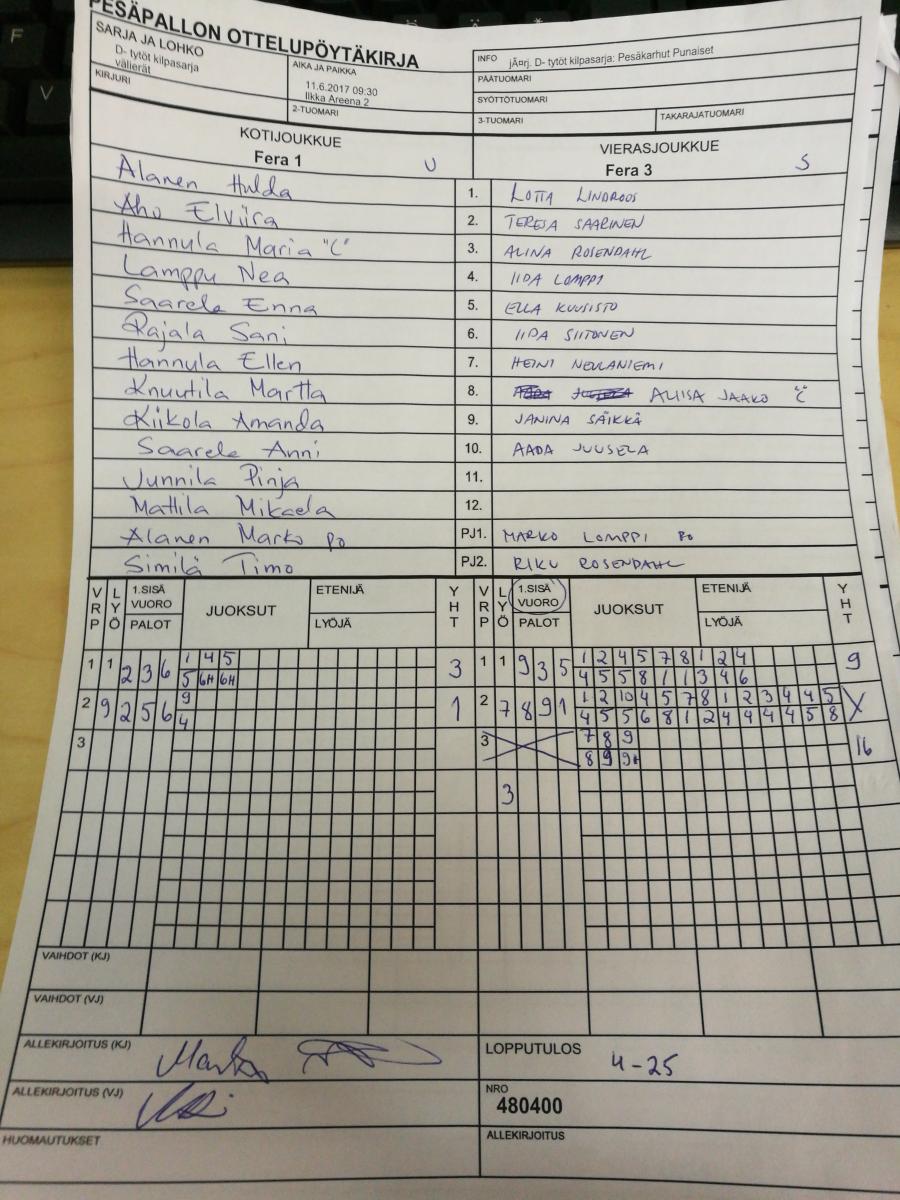 PESÄPALLON OTTELUPÖYTÄKIRJA
SARJA JA LOHKO
D- tytöt kilpasarja
välierät
AIKA JA PAIKKA
11.6.2017 09:30
Ilkka Areena 2
INFO jÃ¤rj. D- tytöt kilpasarja: Pesäkarhut Punaiset
PÄÄTUOMARI
KIRJURI
2-TUOMARI
SYÖTTÖTUOMARI
3-TUOMARI
TAKARAJATUOMARI
KOTIJOUKKUE
Fera 1 U
VIERASJOUKKUE
Fera 3 S
Alanen Hulda 1. LOTTA LINDROOS
Aho Elviira 2. TERESA SAARINEN
Hannula Maria "C" 3. ALINA ROSENDAHL
Lamppu Nea 4. IIDA LOMPPI
Saarela Enna 5. ELLA KUUSISTO
Rajala Sani 6. IIDA SIITONEN
Hannula Ellen 7. HEINI NEULANIEMI
Knuutila Martta 8. ALIISA JAAKO "C"
Kiikola Amanda 9. JANINA SÄIKKÄ
Saarela Anni 10. AADA JUUSELA
Junnila Pinja 11.
Mattila Mikaela 12.
Alanen Marko po PJ1. MARKO LOMPPI PO
Similä Timo PJ2. RIKU ROSENDAHL
VRP LYÖ 1.SISÄ VUORO PALOT JUOKSUT ETENIJÄ LYÖJÄ YHT VRP LYÖ 1.SISÄ VUORO PALOT JUOKSUT ETENIJÄ LYÖJÄ YHT
1 1 2 3 6 1 4 5 3 1 1 9 3 5 1 2 4 5 7 8 1 2 4 9
5 6H 6H 4 5 5 8 1 1 3 4 6
2 9 2 5 6 9 1 2 7 8 9 1 1 2 10 4 5 7 8 1 2 3 4 4 5 X
4 4 5 5 6 8 1 2 4 4 4 4 5 8
3 3 7 8 9 16
8 9 9H
3
VAIHDOT (KJ)
VAIHDOT (VJ)
ALLEKIRJOITUS (KJ) Marko
LOPPUTULOS 4-25
ALLEKIRJOITUS (VJ)
NRO
480400
HUOMAUTUKSET
ALLEKIRJOITUS